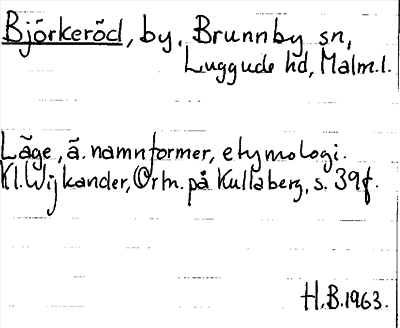 Björkeröd, by, Brunnby sn,
Luggude hd, Malm.l.
Läge, ä. namnformer, etymologi.
Kl. Wijkander, Ortn. på Kullaberg, s. 39f.
H.B.1963.